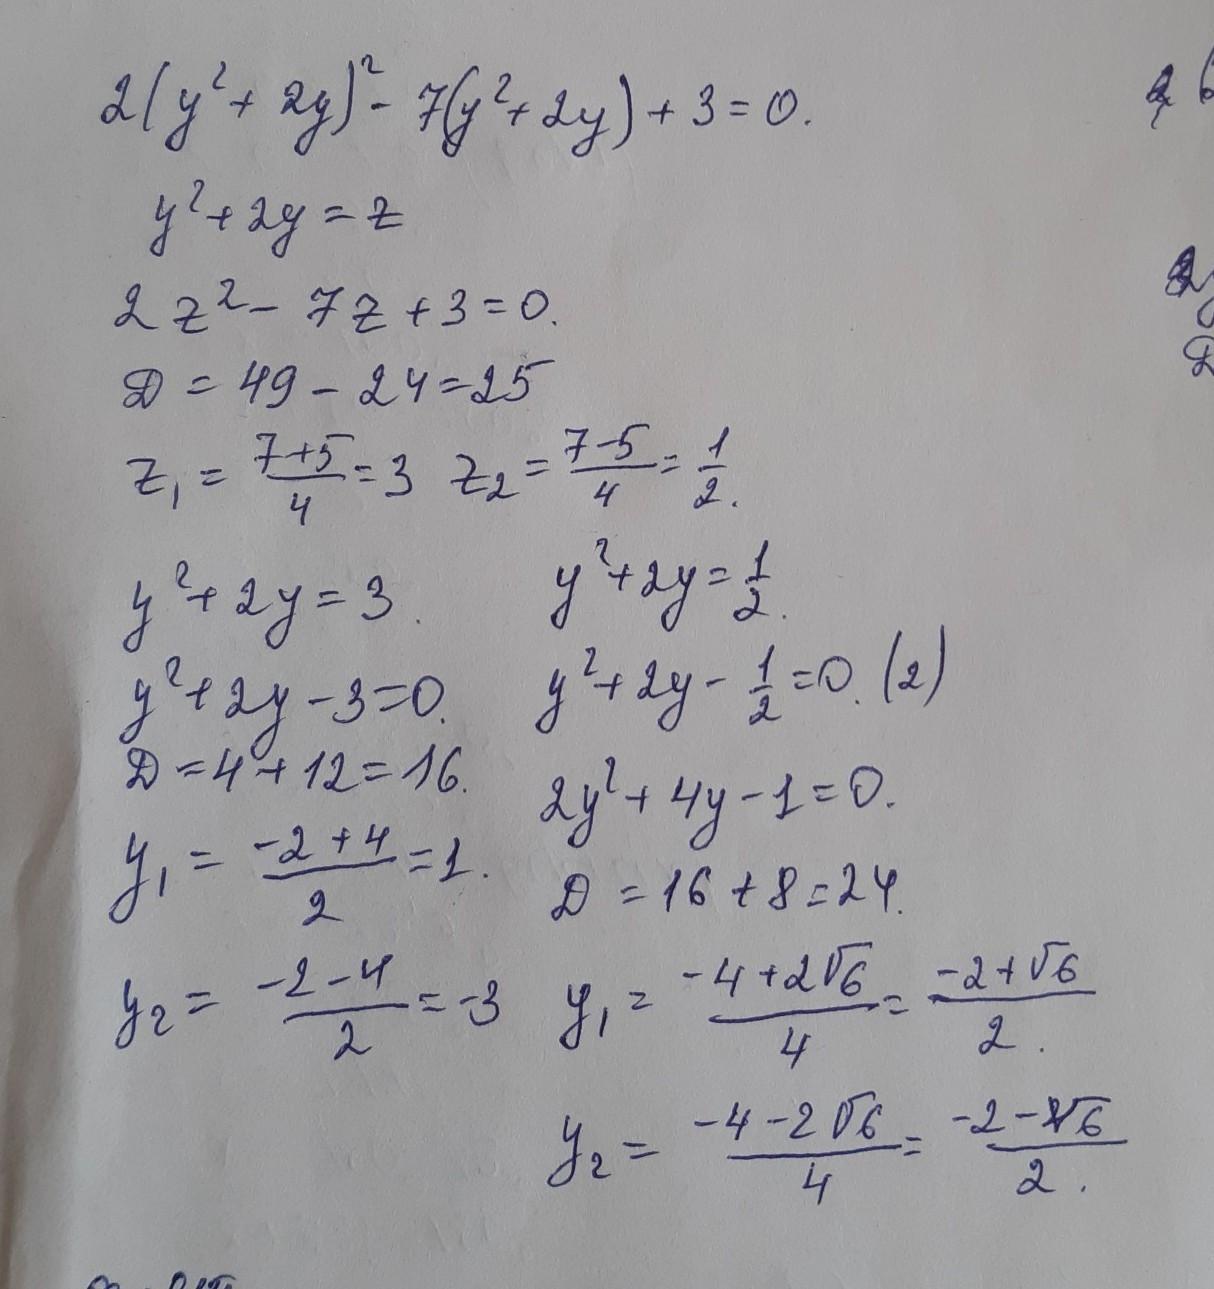 2(y²+2y)²-7(y²+2y)+3=0.
y²+2y=z
2z²-7z+3=0.
D=49-24=25
z₁=(7+5)/4=3 z₂=(7-5)/4=1/2.
y²+2y=3. y²+2y=1/2.
y²+2y-3=0. y²+2y-1/2=0. (2)
D=4+12=16. 2y²+4y-1=0.
y₁=(-2+4)/2=1. D=16+8=24.
y₂=(-2-4)/2=-3 y₁=(-4+2√6)/4=(-2+√6)/2.
y₂=(-4-2√6)/4=(-2-√6)/2.